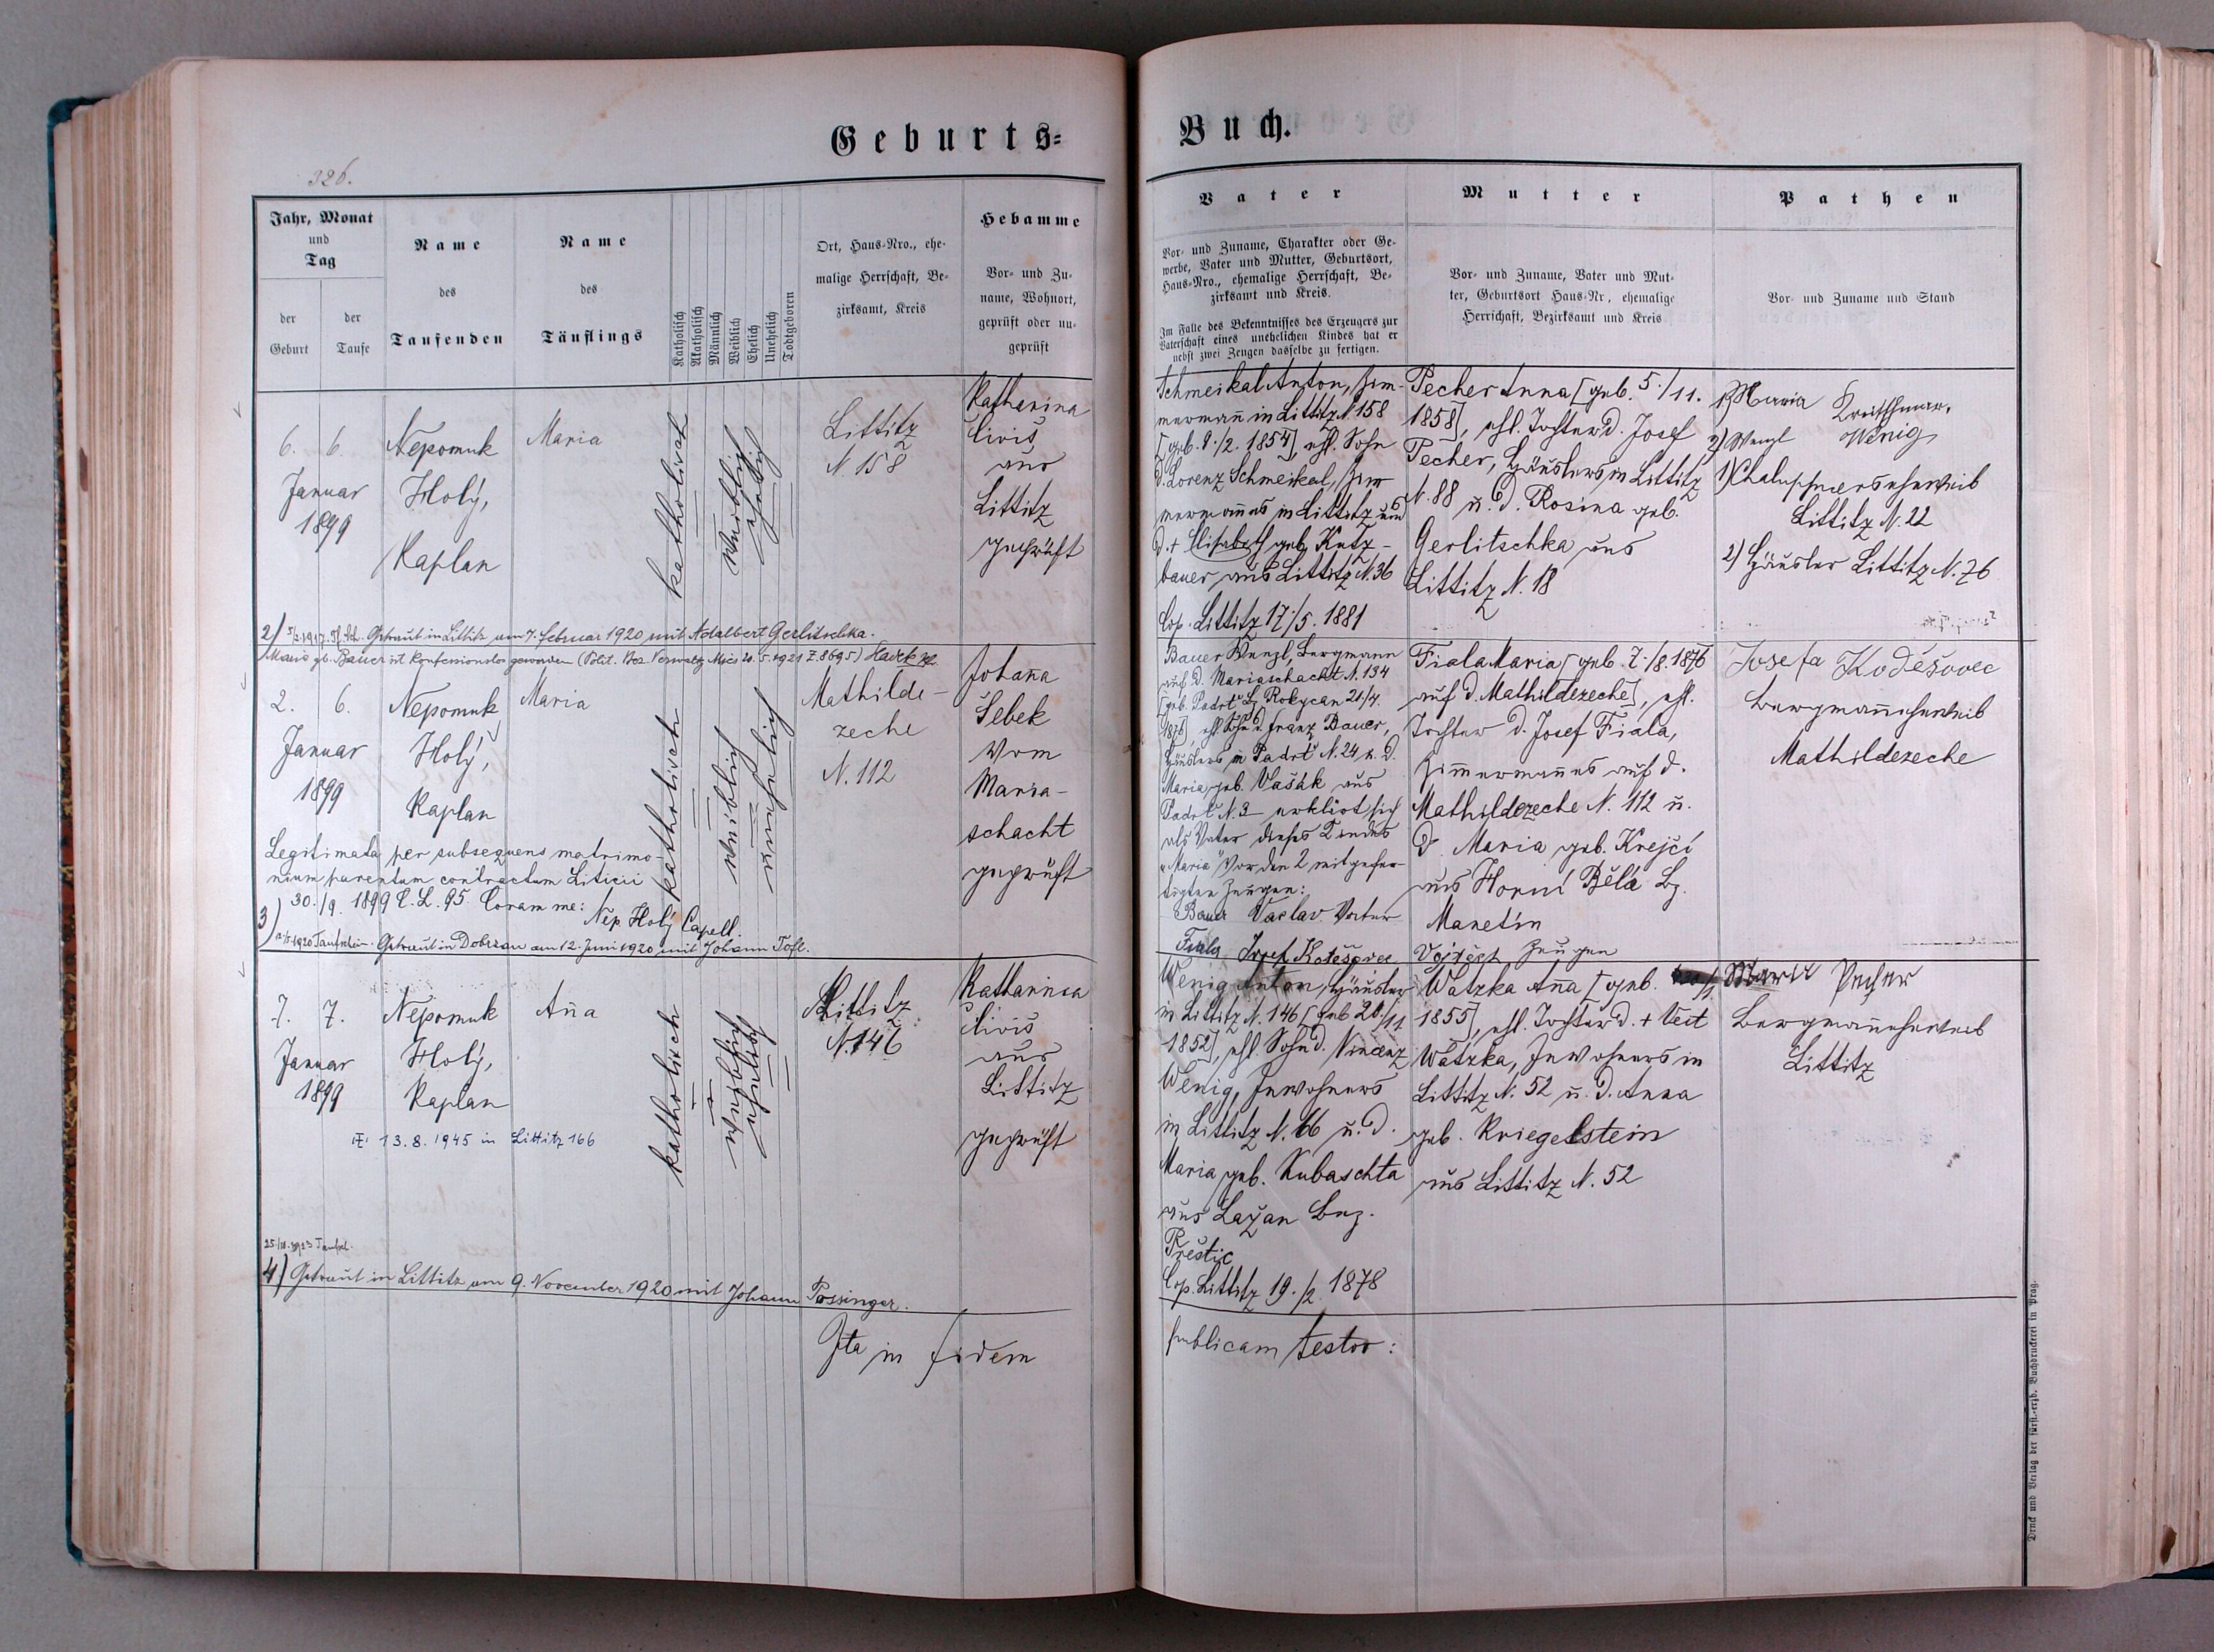 Geburts=
Buch.
326.
Jahr, Monat
und
Tag
der
Geburt
der
Taufe
Name
des
Taufenden
Name
des
Täuflings
Katholisch
Akatholisch
Männlich
Weiblich
Ehelich
Unehelich
Todtgeboren
Ort, Haus-Nro., ehe-
malige Herrschaft, Be-
zirksamt, Kreis
Hebamme
Vor- und Zu-
name, Wohnort,
geprüft oder un-
geprüft
Vater
Vor- und Zuname, Charakter oder Ge-
werbe, Vater und Mutter, Geburtsort,
Haus-Nro., ehemalige Herrschaft, Be-
zirksamt und Kreis.
Im Falle des Bekenntnisses des Erzeugers zur
Vaterschaft eines unehelichen Kindes hat er
nebst zwei Zeugen dasselbe zu fertigen.
Mutter
Vor- und Zuname, Vater und Mut-
ter, Geburtsort Haus-Nr, ehemalige
Herrschaft, Bezirksamt und Kreis
Pathen
Vor- und Zuname und Stand
6. 6.
Januar
1899
Nepomuk
Holý,
Kaplan
Maria
katholisch
weiblich
ehelich
Littitz
N. 158
Katharina
Civiš
aus
Littitz
geprüft
Schmeikal Anton, Zim-
mermañ in Littitz N. 158
[geb. 9./2. 1854], ehl. Sohn
d. Lorenz Schmeikal, Zim
mermañes in Littitz und
d. + Elisabeth geb. Kutz-
bauer aus Littitz N. 36
Cop. Littitz 17./5. 1881
Pecher Anna [geb. 5./11.
1858], ehl. Tochter d. Josef
Pecher, Häuslers in Littitz
N. 88 u. d. Rosina geb.
Gerlitschka aus
Littitz N. 18
1) Maria
2) Wenzl Wenig
1) Chaluppnerseheweib
Littitz N. 22
2) Häusler Littitz N. 76
2) Getraut in Littitz am 7. Februar 1920 mit Adalbert Gerlitschka.
Maria gb. Bauer ist konfessionslos geworden (Polit. Bez Verwaltg Mies 20. 5. 1921 Z. 8695)
2. 6.
Januar
1899
Nepomuk
Holý,
Kaplan
Maria
katholisch
weiblich
unehelich
Mathilde-
zeche
N. 112
Johaña
Šebek
vom
Maria-
schacht
geprüft
Bauer Wenzl, Bergmann
auf d. Mariaschacht N. 134
[geb. Padrť Bz Rokycan 21/4.
1876], ehl. Sohn d. Franz Bauer,
Häuslers in Padrť N. 24 u. d.
Maria geb. Vašák aus
Padrť N. 3 erklärt sich
als Vater dieses Kindes
"Maria" vor den 2 mitgefer-
tigten Zeugen:
Bauer Vaclav Vater
Fiala Josef Vojtěch Zeugen
Fiala Maria [geb. 7./8. 1876
auf d. Mathildezeche], ehl.
Tochter d. Josef Fiala,
Zimmermañes auf d.
Mathildezeche N. 112 u.
d. Maria geb. Krejčí
aus Horní Bělá Bz.
Manetín
Josefa Koděšovec
Bergmañeheweib
Mathildezeche
Legitimata per subsequens matrimo
nium parentum contractum Liticii
30./9. 1899 C. L. 95 Coram me:
Nep. Holý Capell.
3) Getraut in Dobrzan am 12. Juni 1920 mit Johann Tofl.
7. 7.
Januar
1899
Nepomuk
Holý,
Kaplan
Aña
katholisch
weiblich
ehelich
Littitz
N. 146
Katharina
Civiš
aus
Littitz
geprüft
Wenig Anton, Häusler
in Littitz N. 146 [geb 20./11
1852], ehl. Sohn d. Vincenz
Wenig, Inwohners
in Littitz N. 66 u. d.
Maria geb. Kubaschta
aus Lažan Bez.
Přestic
Cop. Littitz 19./2. 1878
Watzka Aña [geb.
1855], ehl. Tochter d. + Veit
Watzka, Inwohners in
Littitz N. 52 u. d. Anna
geb. Kriegelstein
aus Littitz N. 52
Maria Pecher
Bergmañeheweib
Littitz
13. 8. 1945 in Littitz 166
4) Getraut in Littitz am 9. November 1920 mit Johann Possinger.
Ita in fidem
publicam testor:
Druck und Verlag der fürstl.-erzb. Buchdruckerei in Prag.